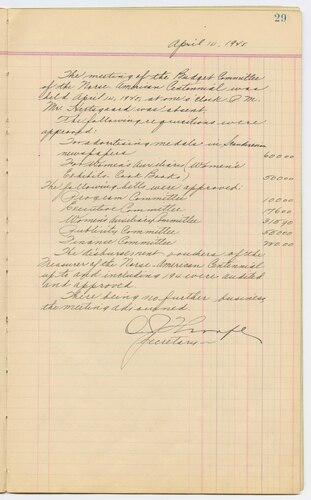 29
April 10, 1925
The meeting of the Budget Committee
of the Norse American Centennial was
held April 10, 1925, at one o'clock P.M.
Mr. Hestegaard was absent.
The following requisitions were
approved:
For advertising medals in
newspapers 600.00
For Women's Auxiliary (Women's
Exhibits, Cook Books) 500.00
The following bills were approved:
Program Committee 100.00
Executive Committee
Women's Auxiliary Committee
Publicity Committee
Finance Committee
The disbursement vouchers of the
Treasurer of the Norse American Centennial
up to and including 194 were audited
and approved.
There being no further business
the meeting adjourned.
Secretary